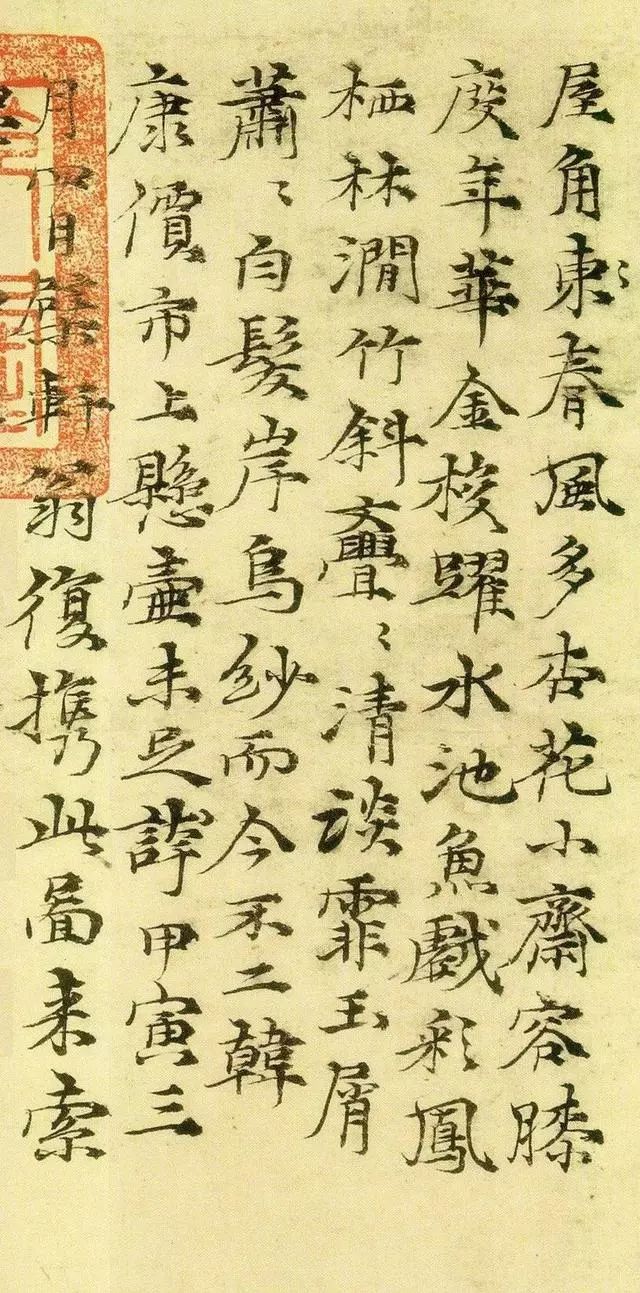 屋角東春風多杏花小齋容膝
度年華金梭躍水池魚戲彩鳳
栖林澗竹斜亹〻清談霏玉屑
蕭〻白髮岸烏紗而今不二韓
康價市上懸壺未足誇甲寅三
月四日檗軒翁復携此圖来索